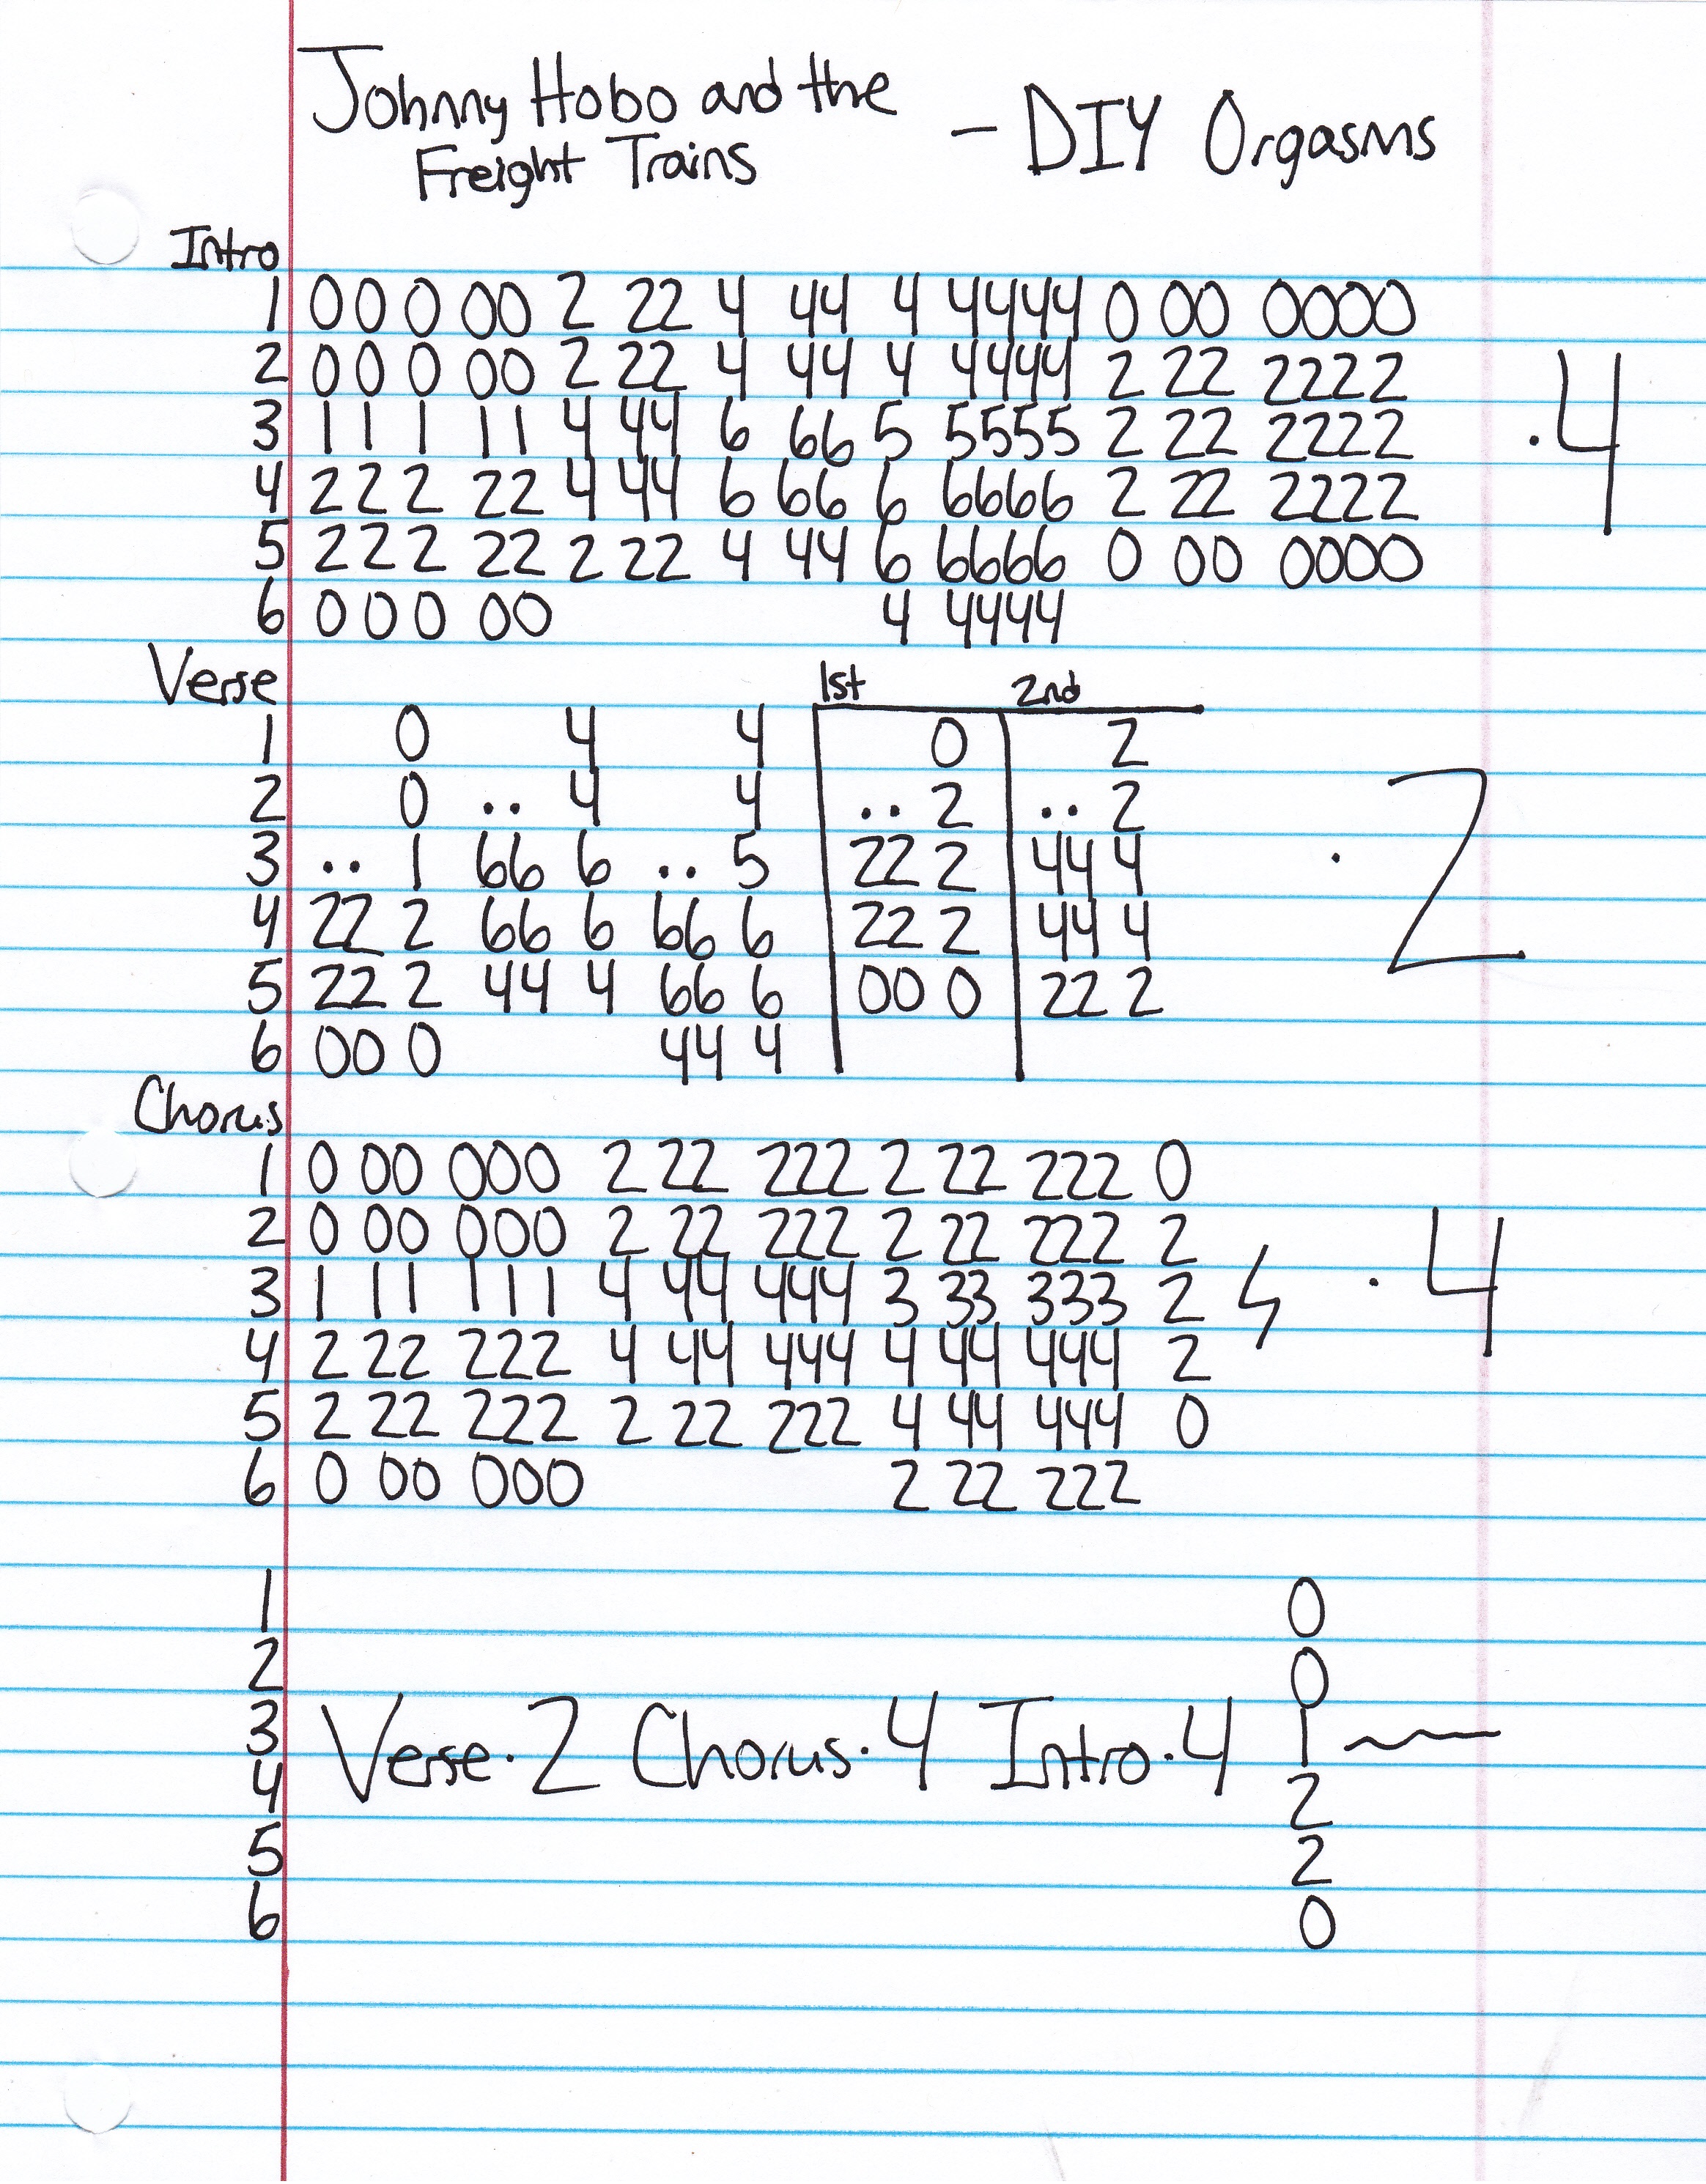 Johnny Hobo and the
Freight Trains - DIY Orgasms
Intro
1 0 0 0 00 2 22 4 44 4 4444 0 00 0000
2 0 0 0 00 2 22 4 44 4 4444 2 22 2222
3 1 1 1 11 4 44 6 66 5 5555 2 22 2222 .4
4 2 2 2 22 4 44 6 66 6 6666 2 22 2222
5 2 2 2 22 2 22 4 44 6 6666 0 00 0000
6 0 0 0 00 4 4444
Verse 1st 2nd
1 0 4 4 0 2
2 0 .. 4 4 .. 2 .. 2
3 .. 1 66 6 .. 5 22 2 44 4 . 2
4 22 2 66 6 66 6 22 2 44 4
5 22 2 44 4 66 6 00 0 22 2
6 00 0 44 4
Chorus
1 0 00 000 2 22 222 2 22 222 0
2 0 00 000 2 22 222 2 22 222 2
3 1 11 111 4 44 444 3 33 333 2 . 4
4 2 22 222 4 44 444 4 44 444 2
5 2 22 222 2 22 222 4 44 444 0
6 0 00 000 2 22 222
1 0
2 0
3 Verse.2 Chorus.4 Intro.4 1
4 2
5 2
6 0